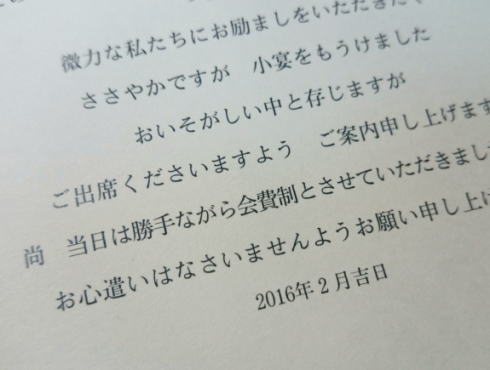 微力な私たちにお励ましをいただきたく
ささやかですが　小宴をもうけました
おいそがしい中と存じますが
ご出席くださいますよう　ご案内申し上げます
尚　当日は勝手ながら会費制とさせていただきまし
お心遣いはなさいませんようお願い申し上げ
2016年2月吉日